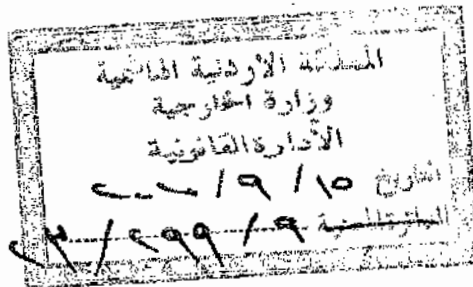 المملكة الاردنية الهاشمية
وزارة الخارجية
الأدارة القانونية
التاريخ ١٥ / ٩ / ٢٠٠٢
٩ / ٢٩٩